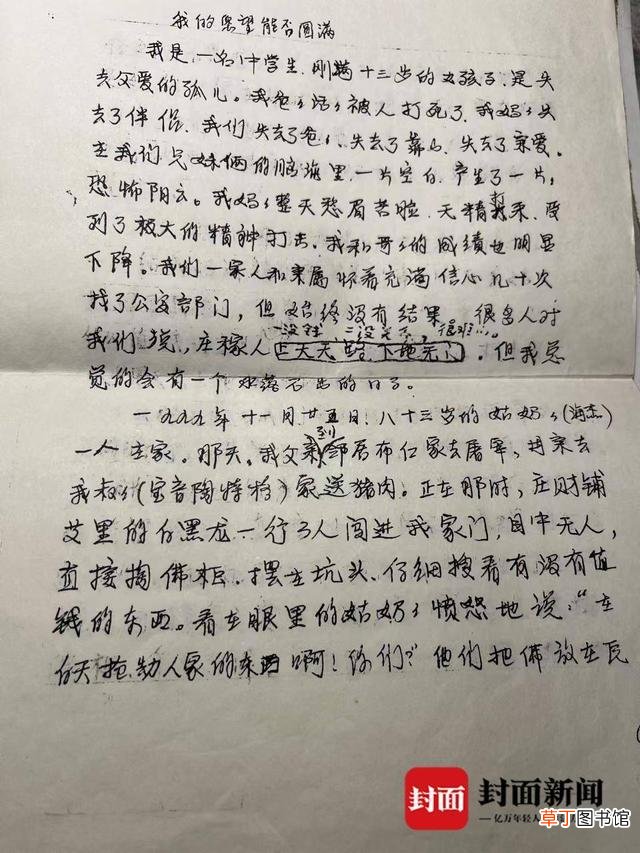 我的愿望能否圆满
我是一名中学生.刚满十三岁的女孩子.是失
去父爱的孤儿。我爸爸活活被人打死了.我妈妈失
去了伴侣.我们失去了爸爸、失去了靠山.失去了亲爱.
在我们兄妹俩的脑海里.一片空白.产生了一片,
恐怖阴云。我妈妈整天愁眉苦脸.无精打采.受
到了极大的精神打击.我和哥哥的成绩也明显
下降。我们一家人和亲属怀着充满信心几十次
找了公安部门，但始终没有结果。很多人对
一没钱 二没 很难…。
我们说,庄稼人 上天无 下地无门.但我总
觉的会有一个水落石出的日子。
一九九九年十一月廿五日:八十三岁的姑奶奶(海杰)
一人在家.那天.我父亲到邻居布仁家去屠宰,
我叔叔(宝音陶特格)家送猪肉。正在那时,庄财铺
艾里的白黑龙一行3人闯进我家门,目中无人,
直接掏佛柜.摆在坑头.仔细搜看有没有值
钱的东西。看在眼里的姑奶奶愤怒地说:“在
白天抢劫人家的东西啊!你们?”他们把佛放在瓦
封面 封面新闻
亿万年轻人
草丁图书馆